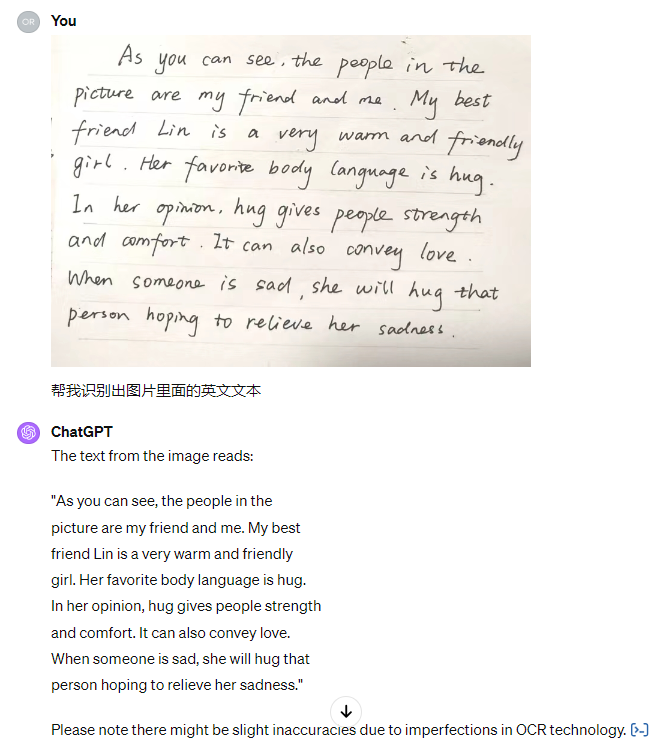 OR
You
As you can see, the people in the
picture are my friend and me. My best
friend Lin is a very warm and friendly
girl. Her favorite body language is hug.
In her opinion, hug gives people strength
and comfort. It can also convey love.
When someone is sad, she will hug that
person hoping to relieve her sadness.
帮我识别出图片里面的英文文本
ChatGPT
The text from the image reads:
"As you can see, the people in the
picture are my friend and me. My best
friend Lin is a very warm and friendly
girl. Her favorite body language is hug.
In her opinion, hug gives people strength
and comfort. It can also convey love.
When someone is sad, she will hug that
person hoping to relieve her sadness."
Please note there might be slight inaccuracies due to imperfections in OCR technology. [>-]